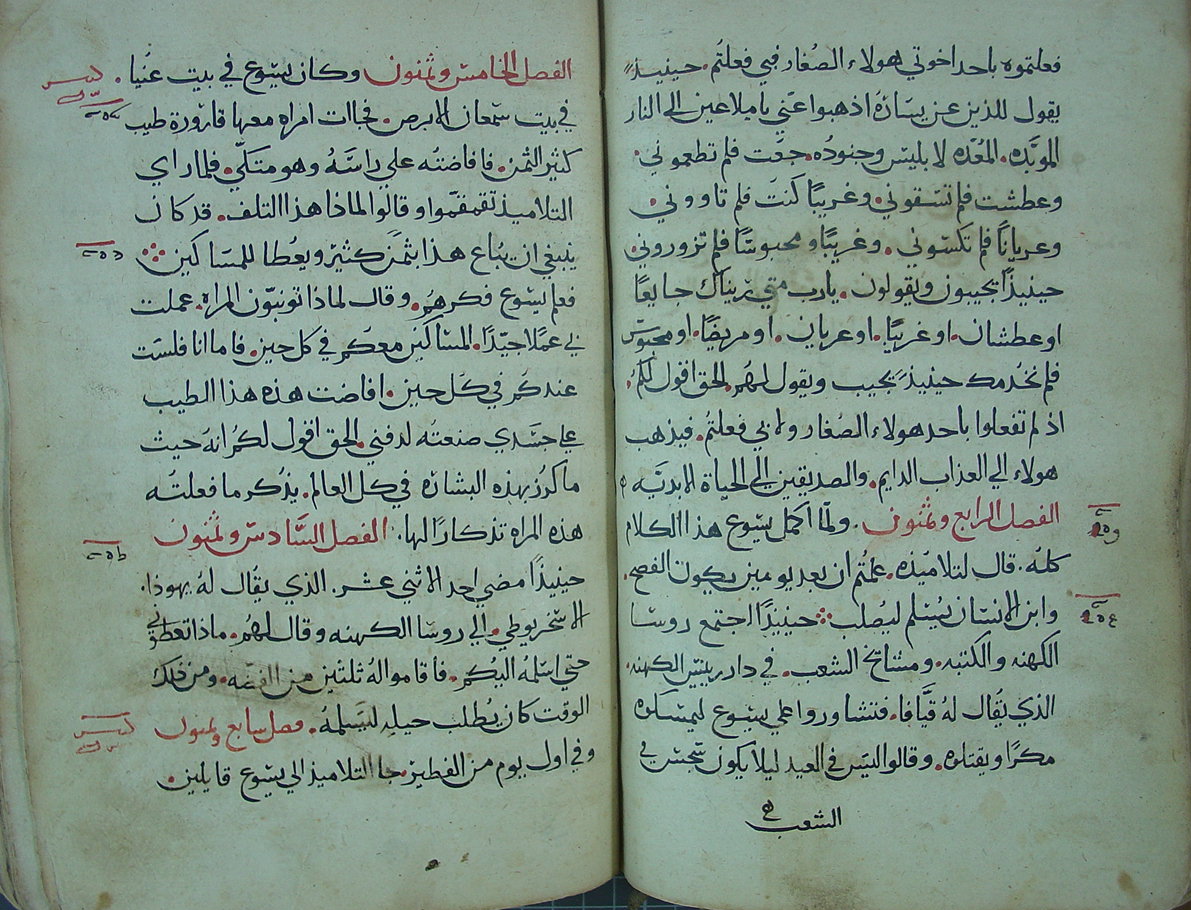 فعلتموه باحد اخوتي هولاء الصغار فبي فعلتم. حينيذ
يقول للذين عن يساره اذهبوا عني ياملاعين الي النار
الموبده. المعده لابليس وجنوده. جعت فلم تطعموني.
وعطشت فلم تسقوني. وغريبًا كنت فلم تاووني.
وعريانًا فلم تكسوني. وغريبًا ومحبوسًا فلم تزوروني.
حينيذًا يجيبون ويقولون. يارب متي ريناك جايعًا
او عطشان. او غريبًا. او عريان. او مريضًا. او محبوس
فلم نخدمك حينيذ يجيب ويقول لهم. الحق اقول لكم.
اذ لم تفعلوا باحد هولاء الصغار ولا بي فعلتم. فيذهب
هولاء الي العذاب الدايم. والصديقين الي الحياة الابديه
الفصل الرابع وثمنون. ولما اكمل يسوع هذا الكلام
كله. قال لتلاميذه. علمتم ان بعد يومين يكون الفصح.
وابن الانسان يسلم ليصلب. حينيذًا اجتمع روسا
الكهنه والكتبه. ومشايخ الشعب. في دار رييس الكهنه.
الذي يقال له قيافا. فتشاوروا علي يسوع ليمسكوه
مكرًا ويقتلوه. وقالوا ليس في العيد ليلا يكون سجس في
الشعب
الفصل الخامس وثمنون وكان يسوع في بيت عنيا.
في بيت سمعان الابرص. فجاات امراه معها قارورة طيب
كثير الثمن. فافاضته علي راسه وهو متكي. فلما راي
التلاميذ تقمقموا وقالوا لماذا هذا التلف. قد كان
ينبغي ان يباع هذا بثمن كثير ويعطا للمساكين
فعلم يسوع فكرهم. وقال لماذا توبنون المراه. عملت
بي عملًا جيدًا. المساكين معكم في كل حين. فاما انا فلست
عندكم في كل حين. افاضت هذه هذا الطيب
علي جسدي صنعته لدفني. الحق اقول لكم انه حيث
ما كرز بهذه البشاره في كل العالم. يذكر ما فعلته
هذه المراه تذكارًا لها. الفصل السادس وثمنون
حينيذًا مضي احد الاثني عشر. الذي يقال له يهوذا.
الاسخريوطي. الي روسا الكهنه وقال لهم. ماذا تعطوني
حتي اسلمه اليكم. فاقاموا له ثلثين من الفضه. ومن ذلك
الوقت كان يطلب حيله ليسلمه. فصل سابع وثمنون
وفي اول يوم من الفطير. جا التلاميذ الي يسوع قايلين.